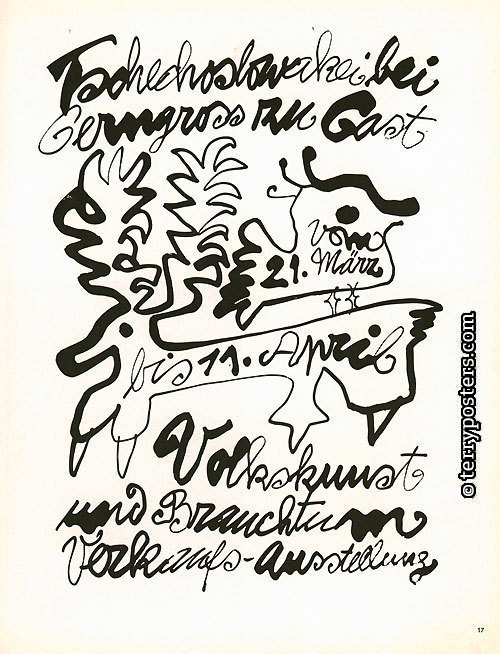 Tschechoslowakei bei
Gerngross zu Gast
vom
21. März
bis 11. April
Volkskunst
und Brauchtum
Verkaufs-ausstellung
© terryposters.com
17